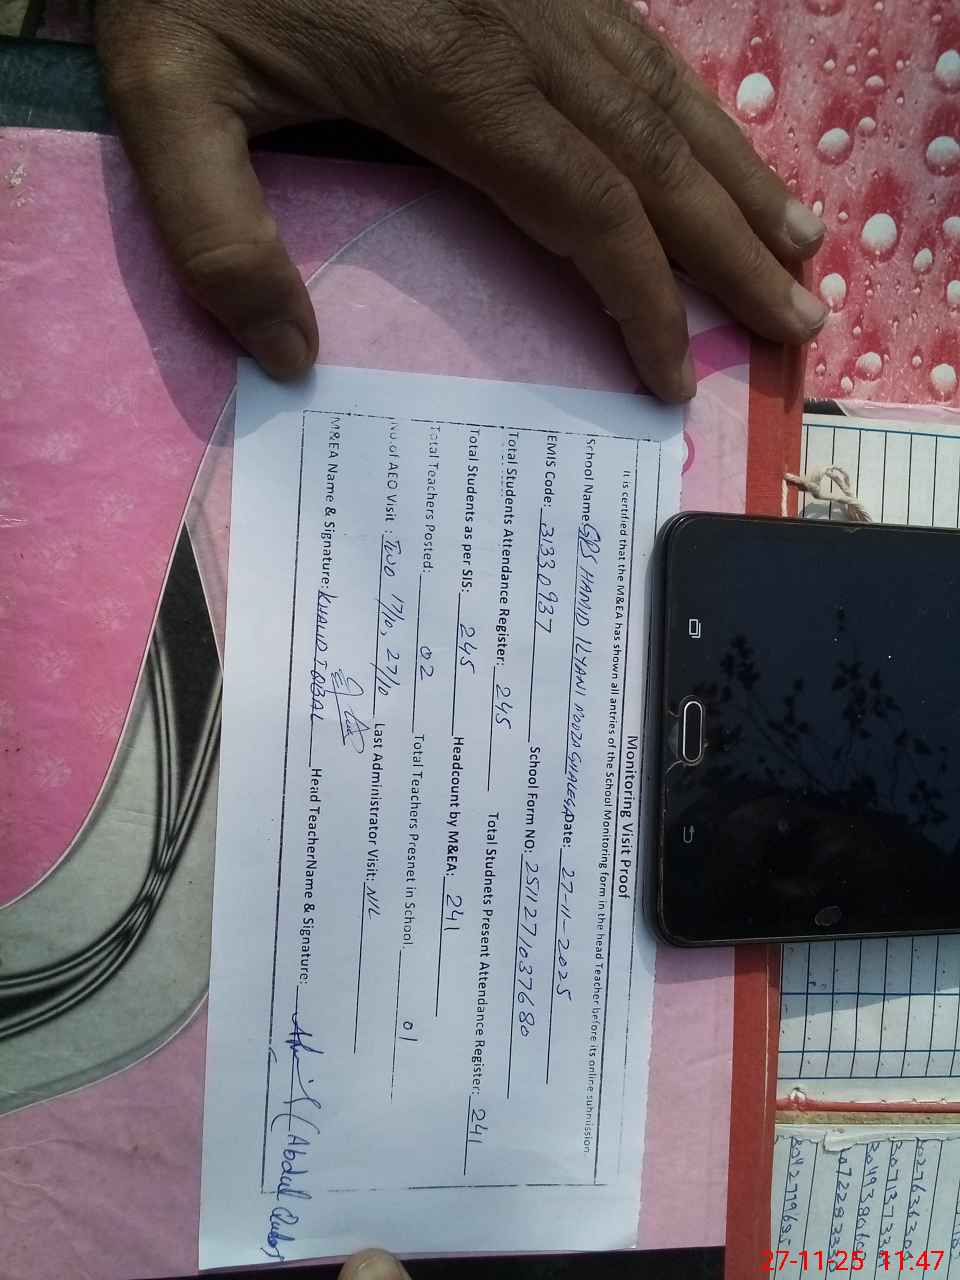 Monitoring Visit Proof
It is certified that the M&EA has shown all antries of the School Monitoring form in the head Teacher before its online submission.
School Name GPS HAMID ILYANI MOUZA GHALEGA Date: 27-11-2025
EMIS Code: 31330937 School Form NO: 251127103768 0
Total Students Attendance Register: 245 Total Studnets Present Attendance Register: 241
Total Students as per SIS: 245 Headcount by M&EA: 241
Total Teachers Posted: 02 Total Teachers Presnet in School. 01
No.of AEO Visit : TWO 17/10, 27/10 Last Administrator Visit: NIL
M&EA Name & Signature: KHALID IQBAL Head TeacherName & Signature: (Abdul
3042779695
27-11-25 11:47